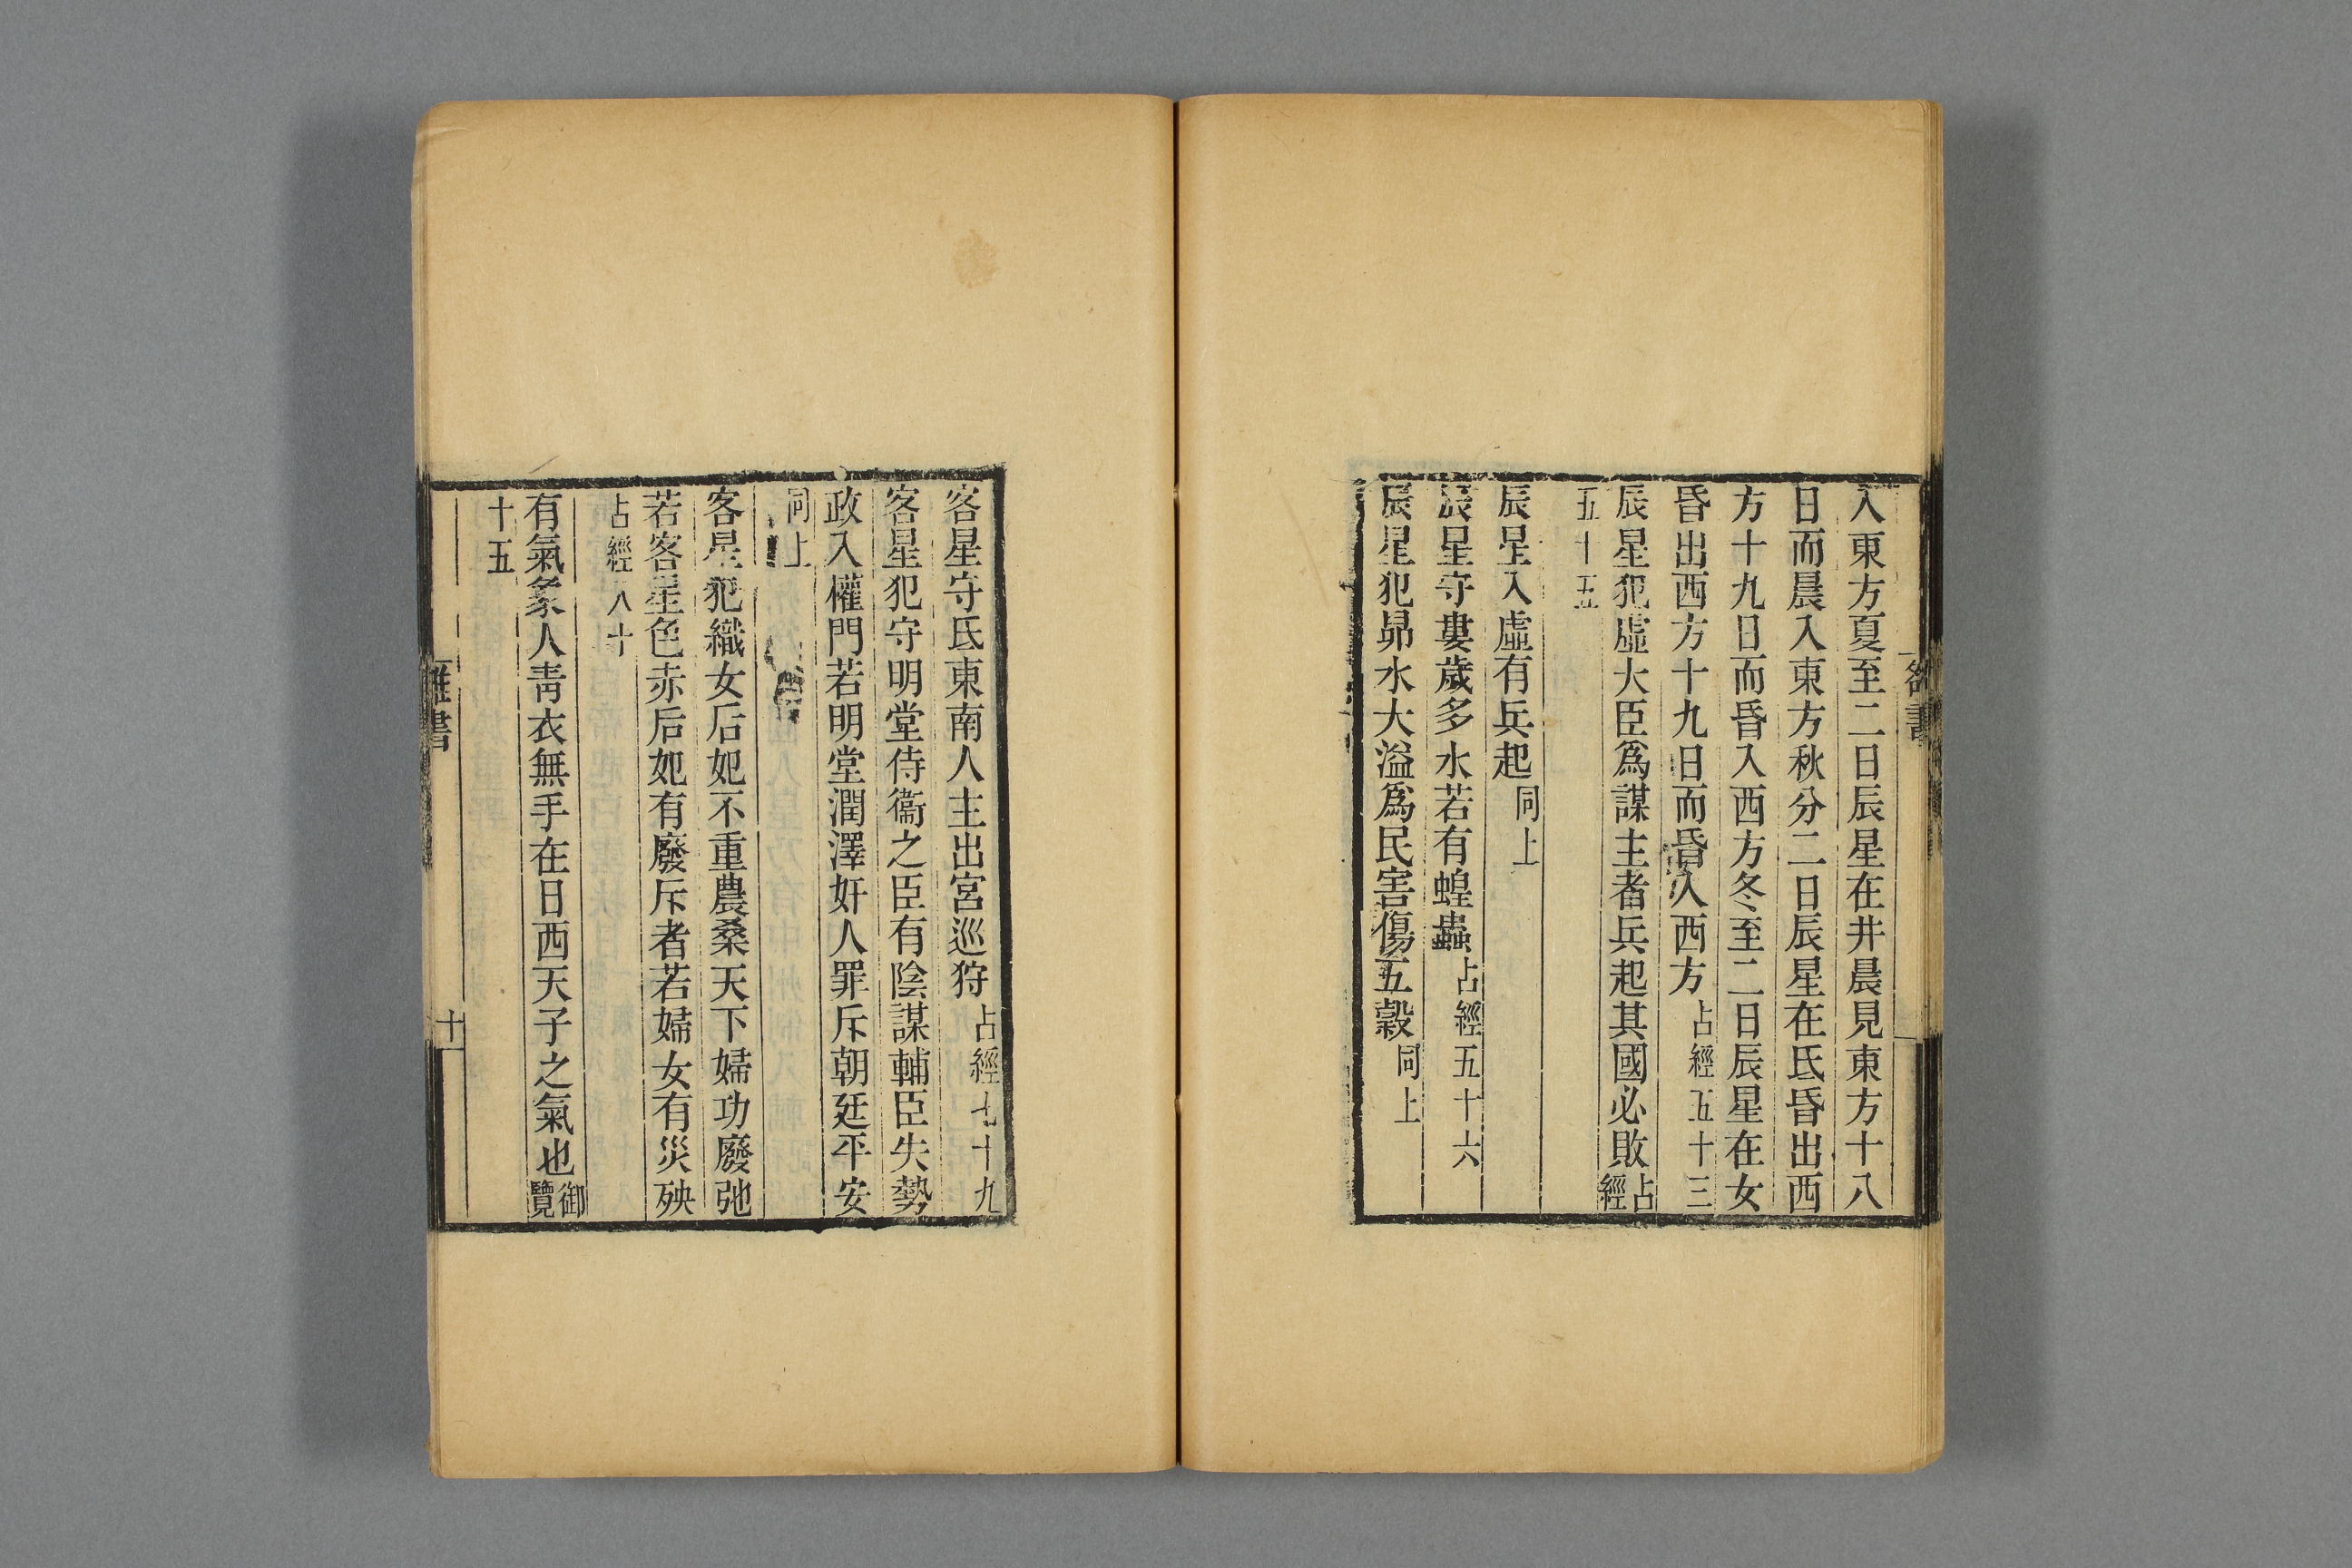 入東方夏至二日辰星在井晨見東方十八
日而晨入東方秋分二日辰星在氐昏出西
方十九日而昏入西方冬至二日辰星在女
昏出西方十九日而昏入西方占經五十三
辰星犯虛大臣爲謀主者兵起其國必敗占經
五十五
辰星入虛有兵起同上
辰星守婁歲多水若有蝗蟲占經五十六
辰星犯昴水大溢爲民害傷五穀同上
客星守氐東南人主出宮巡狩占經七十九
客星犯守明堂侍衞之臣有陰謀輔臣失勢
政入權門若明堂潤澤奸人罪斥朝廷平安
同上
客星犯織女后妃不重農桑天下婦功廢弛
若客星色赤后妃有廢斥者若婦女有災殃
占經八十
有氣象人靑衣無手在日西天子之氣也御覽
十五
雒書
十